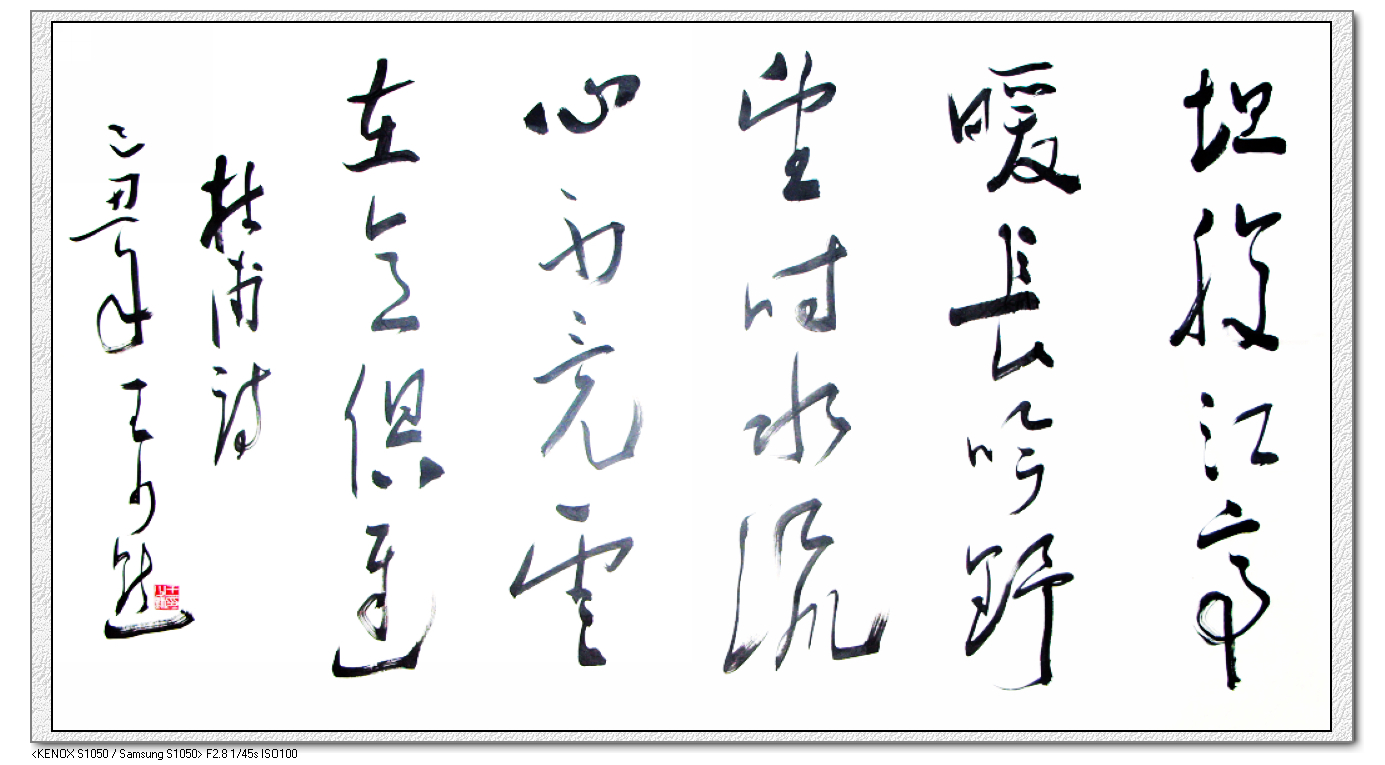 坦腹江亭
暖長吟野
望時水流
心不竞雲
在意俱遲
杜甫詩
己丑年王
<KENOX S1050 / Samsung S1050> F2.8 1/45s ISO100